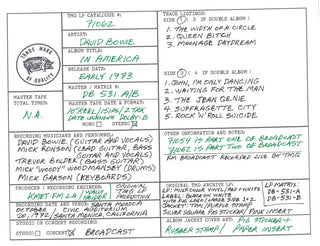 TMQ LP CATALOGUE #:
71062
ARTIST:
DAVID BOWIE
ALBUM TITLE:
IN AMERICA
RELEASE DATE:
EARLY 1973
MASTER / MATRIX #:
DB 531 A/B
TRADE MARK
OF QUALITY
MASTER TAPE
TOTAL TIMES:
N.A.
MASTER TAPE DATE & FORMAT:
10" REEL/15 IPS/2 TRK
DATE UNKNOWN DOLBY-B
MONO STEREO
TRACK LISTINGS:
SIDE 1 ( 3 IF DOUBLE ALBUM )
1. THE WIDTH OF A CIRCLE
2. QUEEN BITCH
3. MOONAGE DAYDREAM
SIDE 2 ( 4 IF DOUBLE ALBUM )
1. JOHN, I'M ONLY DANCING
2. WAITING FOR THE MAN
3. THE JEAN GENIE
4. SUFFRAGETTE CITY
5. ROCK 'N' ROLL SUICIDE
RECORDING MUSICIANS AND PERSONNEL:
DAVID BOWIE (GUITAR AND VOCALS)
MICK RONSON (LEAD GUITAR, BASS
GUITAR AND VOCALS)
TREVOR BOLDER (BASS GUITAR)
MICK "WOODY" WOODMANSEY (DRUMS)
MICK GARSON (KEYBOARDS)
OTHER INFORMATION AND NOTES:
71054 IS PART ONE OF BROADCAST
71062 IS PART TWO OF BROADCAST
FM BROADCAST RECORDED LIVE BY TMQ
PRODUCER / RECORDING ENGINEER:
KMET-FM L.A.
ORIGINAL
TMQ LP
PRODUCTION
RECORDING DATE AND VENUE: SANTA MONICA
OCTOBER CIVIC AUDITORIUM
20, 1972 / SANTA MONICA, CALIFORNIA
STUDIO OR CONCERT RECORDING:
STUDIO CONCERT BROADCAST
ORIGINAL TMQ ARCHIVE LP:
LP MATRIX:
DB-531-A
DB-531-B
ALBUM JACKET COVER ART:
RUBBER STAMP / PAPER INSERT